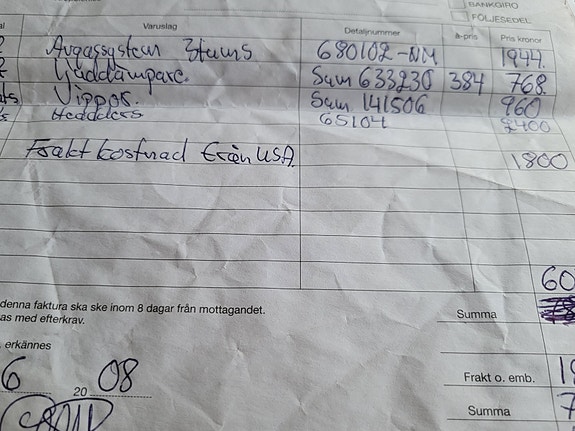 BANKGIRO
FÖLJESEDEL
Varuslag Detaljnummer à-pris Pris kronor
Avgassystem 3tums 680102-NM 1944.
Ljuddämpare. Sum 633230 384 768.
Vippor. Sum 141506 960
Hedders 65104 2400
Frakt kostnad från USA. 1800
60
denna faktura ska ske inom 8 dagar från mottagandet.
as med efterkrav.
Summa
erkännes
6 20 08
Frakt o. emb. 18
Summa 7